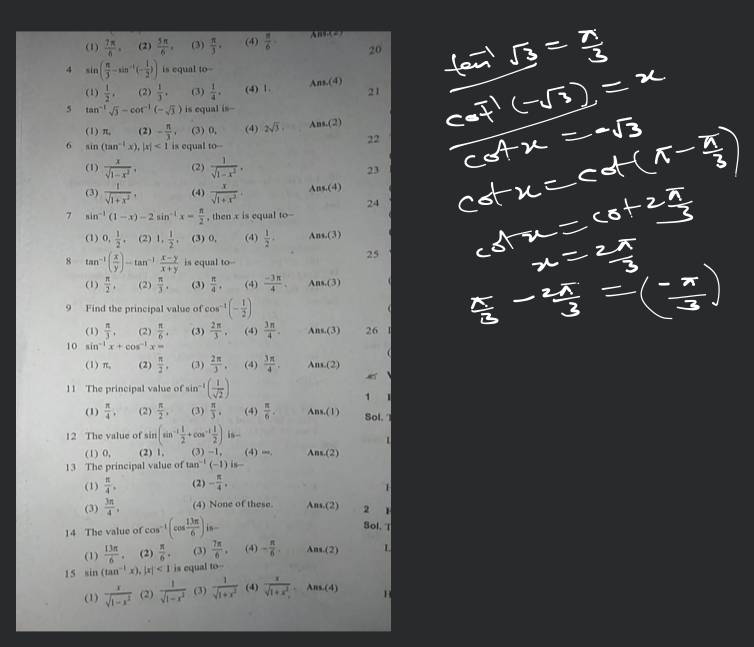 (1) 7π/6, (2) 5π/6, (3) π/3, (4) π/6.
20
4 sin(π/3 − sin⁻¹(−1/2)) is equal to–
(1) 1/2, (2) 1/3, (3) 1/4, (4) 1. Ans.(4)
21
5 tan⁻¹ √3 − cot⁻¹ (−√3) is equal is–
(1) π, (2) −π/3, (3) 0, (4) 2√3. Ans.(2)
22
6 sin (tan⁻¹ x), |x| < 1 is equal to–
(1) x/√1−x², (2) 1/√1−x²,
23
(3) 1/√1+x², (4) x/√1+x². Ans.(4)
24
7 sin⁻¹ (1 − x) − 2 sin⁻¹ x = π/2, then x is equal to–
(1) 0, 1/2, (2) 1, 1/2, (3) 0, (4) 1/2. Ans.(3)
25
8 tan⁻¹(x/y) − tan⁻¹ x−y/x+y is equal to–
(1) π/2, (2) π/3, (3) π/4, (4) −3π/4. Ans.(3)
9 Find the principal value of cos⁻¹(−1/2)
(1) π/3, (2) π/6, (3) 2π/3, (4) 3π/4. Ans.(3)
26
10 sin⁻¹ x + cos⁻¹ x =
(1) π, (2) π/2, (3) 2π/3, (4) 3π/4. Ans.(2)
11 The principal value of sin⁻¹(1/√2)
1
(1) π/4, (2) π/2, (3) π/3, (4) π/6. Ans.(1)
Sol.
12 The value of sin(sin⁻¹ 1/2 + cos⁻¹ 1/2) is–
(1) 0, (2) 1, (3) −1, (4) ∞. Ans.(2)
13 The principal value of tan⁻¹ (−1) is–
(1) π/4, (2) −π/4,
(3) 3π/4, (4) None of these. Ans.(2)
2
14 The value of cos⁻¹(cos 13π/6) is–
Sol.
(1) 13π/6, (2) π/6, (3) 7π/6, (4) −π/6. Ans.(2)
15 sin (tan⁻¹ x), |x| < 1 is equal to–
(1) x/√1−x² (2) 1/√1−x² (3) 1/√1+x² (4) x/√1+x². Ans.(4)
tan⁻¹ √3 = π/3
cot⁻¹ (−√3) = x
cot x = −√3
cot x = cot(π − π/3)
cot x = cot 2π/3
x = 2π/3
π/3 − 2π/3 = (−π/3)